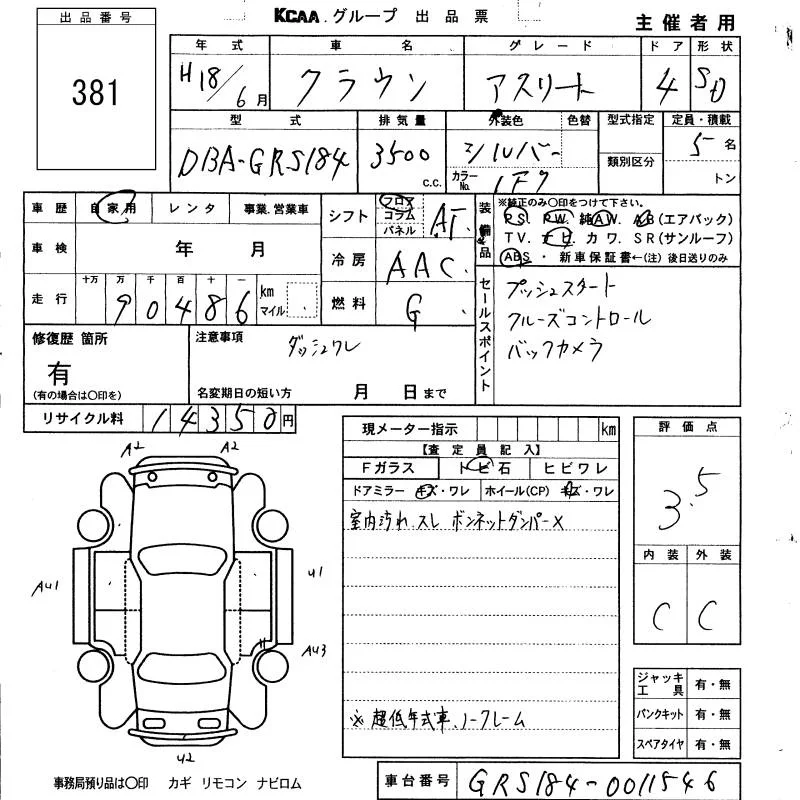 KCAA.グループ 出品票
主催者用
出品番号
381
年式 車名 グレード ドア 形状
H18/6月 クラウン アスリート 4 SD
型式 排気量 外装色 色替 型式指定 定員・積載
DBA-GRS184 3500 c.c. シルバー 5名
カラーNo. 1F7 類別区分 トン
車歴 自家用 レンタ 事業.営業車
シフト フロア コラム パネル AT.
装備品 ※純正のみ〇印をつけて下さい。
PS. PW. 純AW. AB(エアバック)
TV. ナビ. カワ. SR(サンルーフ)
ABS・新車保証書←(注)後日送りのみ
車検 年 月
冷房 AAC.
走行 十万 万 千 百 十 一
90486 km マイル
燃料 G.
セールスポイント
プッシュスタート
クルーズコントロール
バックカメラ
修復歴 箇所
有
(有の場合は〇印を)
注意事項 ダッシュワレ
名変期日の短い方 月 日まで
リサイクル料 14350円
現メーター指示 km
【査定員記入】
Fガラス トビ石 ヒビワレ
ドアミラー キズ・ワレ ホイール(CP) キズ・ワレ
室内汚れ スレ ボンネットダンパー×
※超低年式車、ノークレーム
評価点
3.5
内装 外装
C C
A2 A2
AU1 U1
H AU3
U2
ジャッキ工具 有・無
パンクキット 有・無
スペアタイヤ 有・無
事務局預り品は〇印 カギ リモコン ナビロム
車台番号 GRS184-0011546